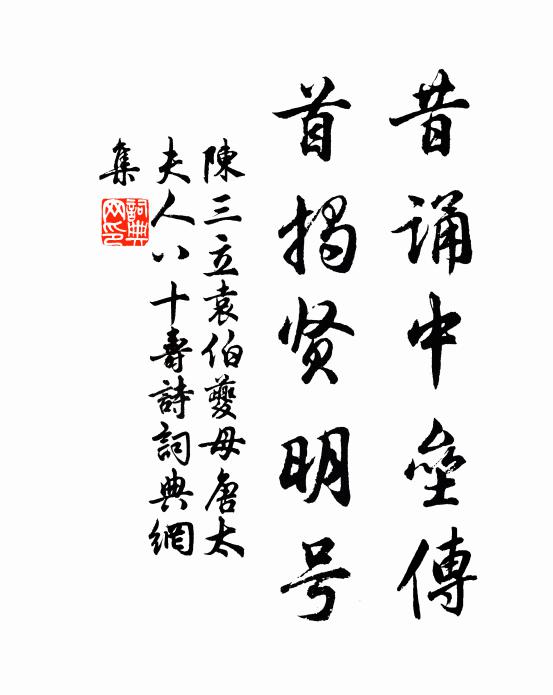 昔誦中壘傳
首揭贤明号
陳三立袁伯夔母唐太
夫人八十壽詩詞典網
集
詞典网印